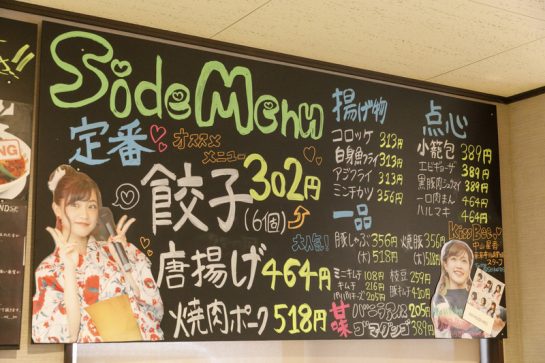 Side Menu
定番
オススメ
メニュー
餃子
(6個)
302円
大人気！
唐揚げ 464円
焼肉ポーク 518円
揚げ物
コロッケ 313円
白身魚フライ 313円
アジフライ 313円
ミンチカツ 356円
一品
豚しゃぶ 356円
(大) 518円
焼豚 356円
(大) 518円
ミニキムチ 108円
キムチ 216円
205円
枝豆 259円
豚キムチ 410円
甘味
バニラアイス 205円
ゴマダンゴ 389円
点心
小籠包 389円
エビギョーザ 389円
黒豚肉シュウマイ 389円
一口肉まん 464円
ハルマキ 464円
KissBee
中山星香